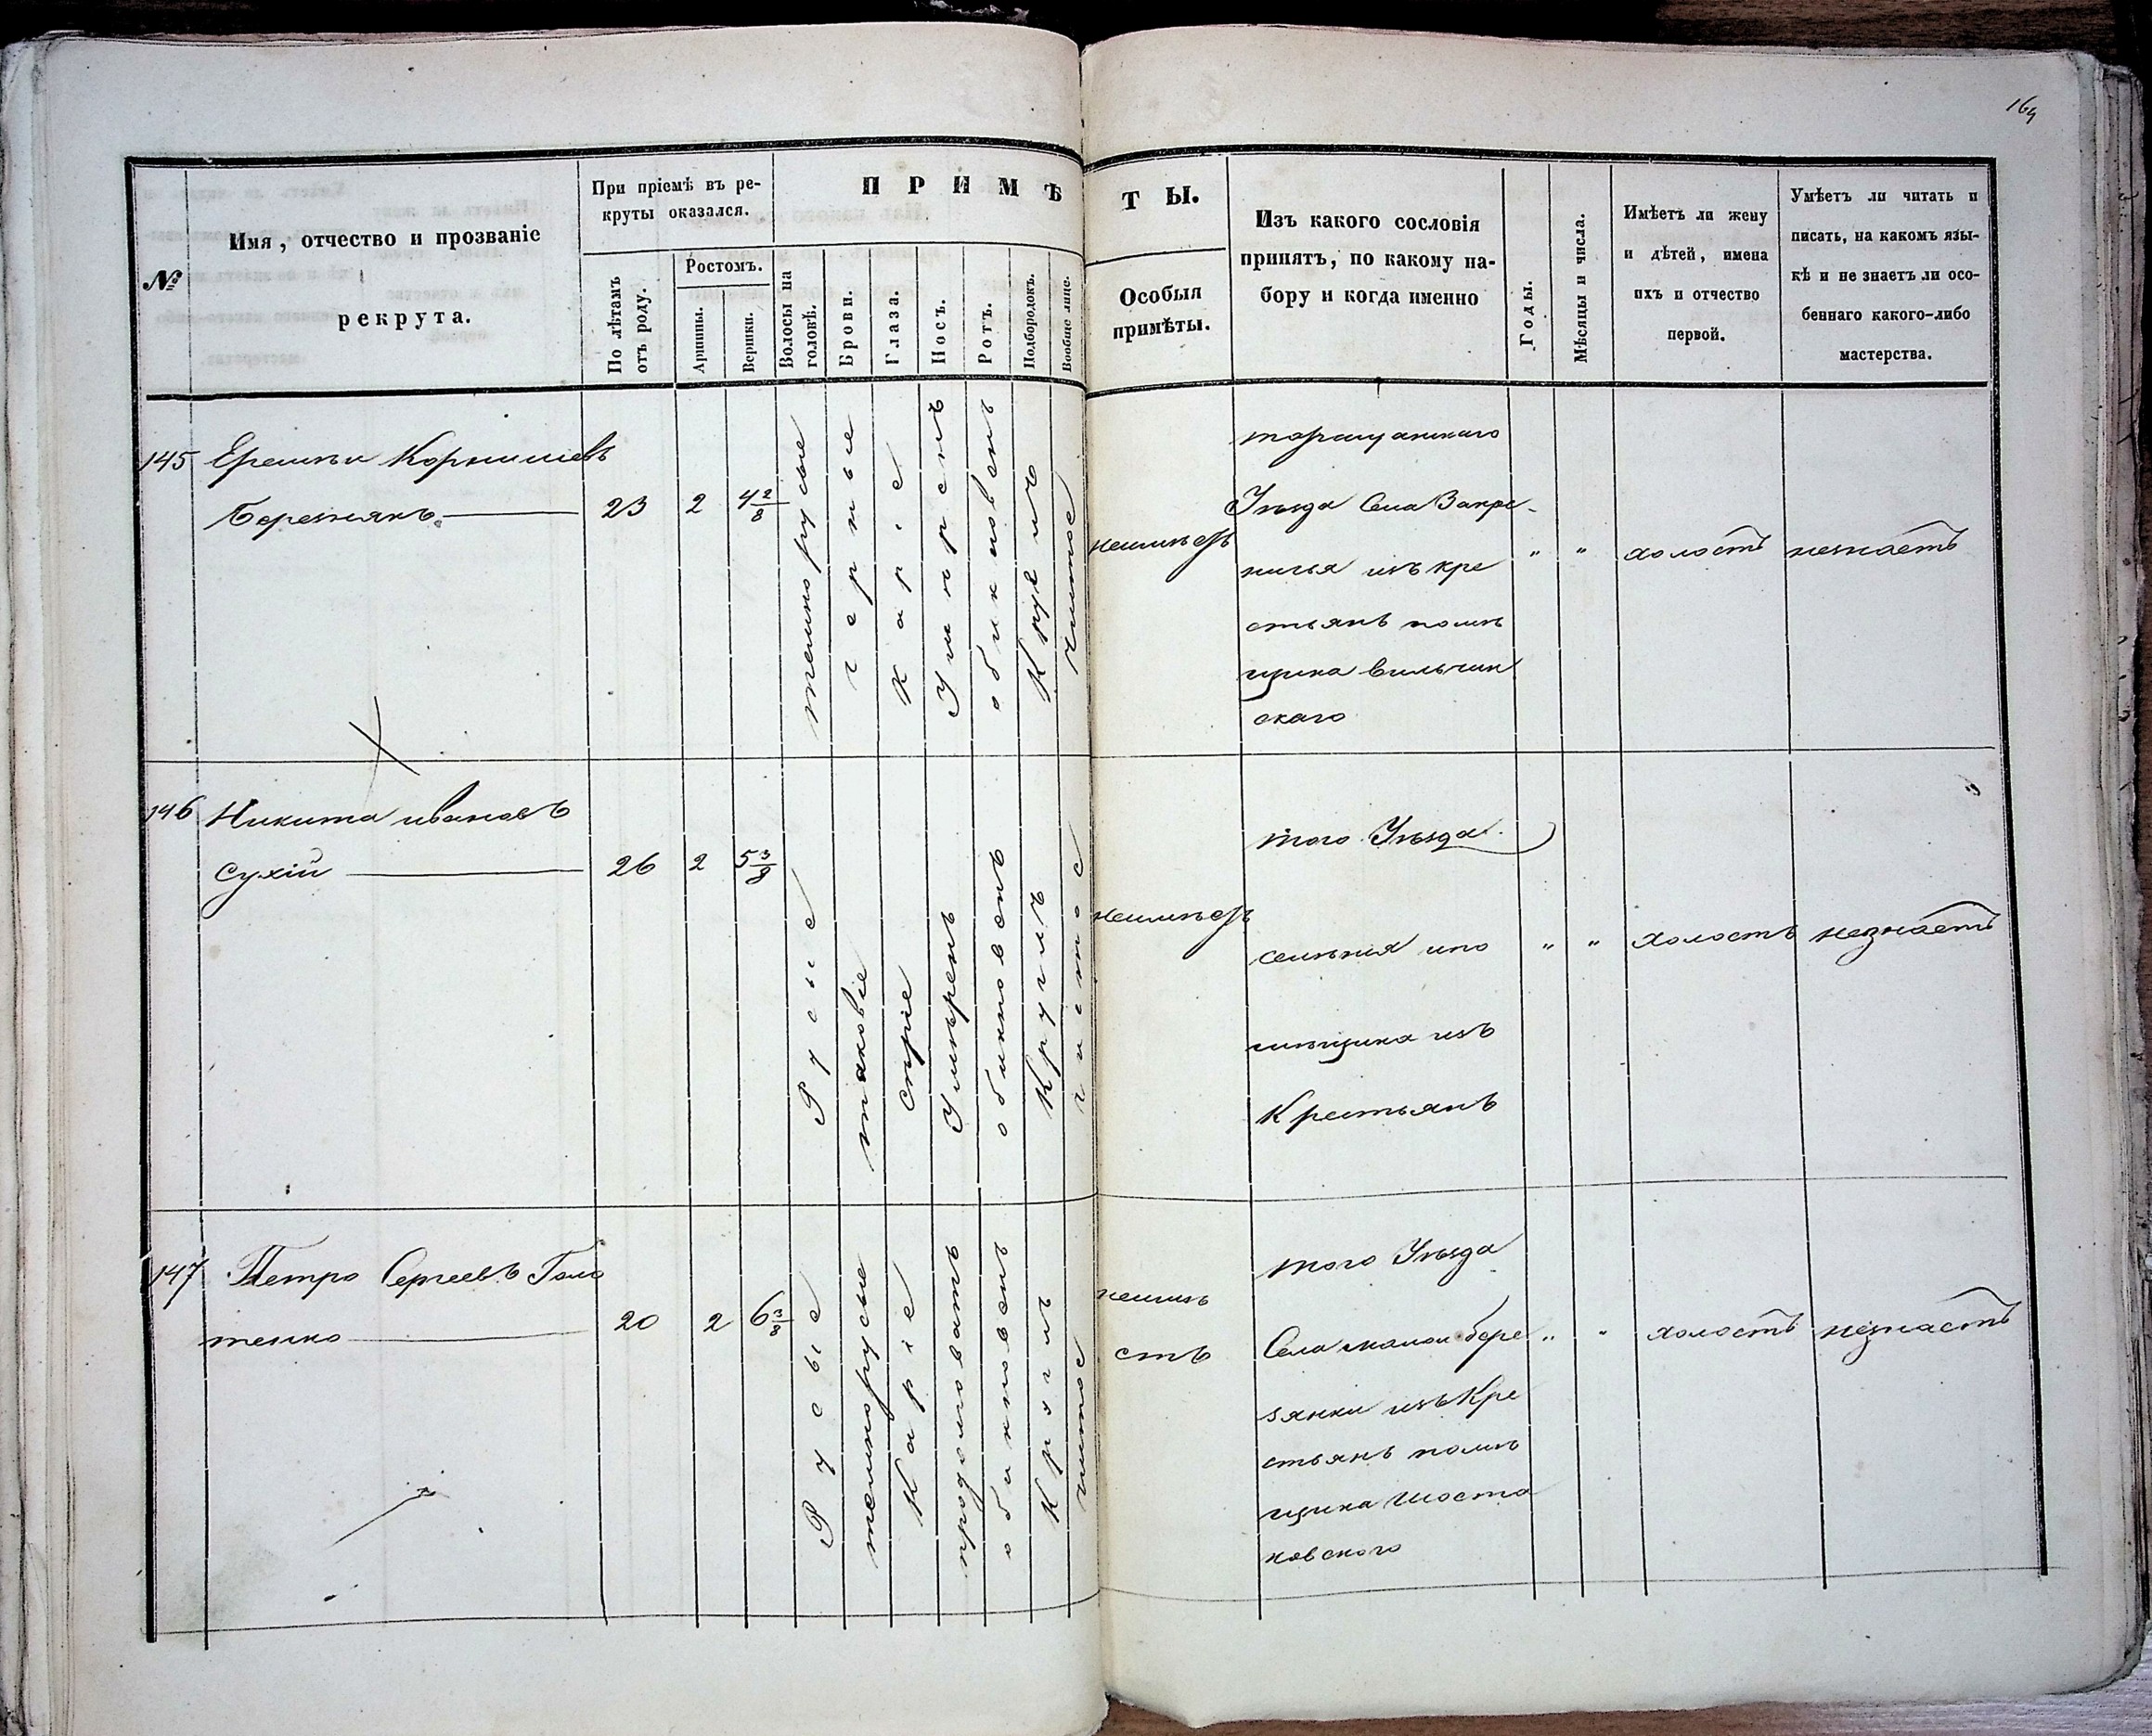 164
№
Имя, отчество и прозваніе
рекрута.
При пріемѣ въ ре-
круты оказался.
По лѣтамъ
отъ роду.
Ростомъ.
Аршины.
Вершки.
ПРИМѢ
ТЫ.
Волосы на
головѣ.
Брови.
Глаза.
Носъ.
Ротъ.
Подбородокъ.
Вообще лице.
Особыя
примѣты.
Изъ какого сословія
принятъ, по какому на-
бору и когда именно
Годы.
Мѣсяцы и числа.
Имѣетъ ли жену
и дѣтей, имена
ихъ и отчество
первой.
Умѣетъ ли читать и
писать, на какомъ язы-
кѣ и не знаетъ ли осо-
беннаго какого-либо
мастерства.
145
Корнилѣевъ
Березнякъ
23
2
4 2/8
темнорусые
черные
Каріе
Умѣренъ
обикновенъ
Круглъ
чистое
неимѣетъ
таращанскаго
Уѣзда Села Закре-
ничья изъ кре
стьянъ помѣ
щика вильчин
скаго
"
"
холостъ
незнаетъ
146
Никита ивановъ
сухій
26
2
5 3/8
Русые
таковіе
сѣріе
Умѣренъ
обикновенъ
Круглъ
чистое
неимѣетъ
того Уѣзда
сельнія ипо
мѣщика изъ
Крестьянъ
"
"
холостъ
незнаетъ
147
Петро Сергеевъ Голо
тенко
20
2
6 3/8
Русые
темнорусые
Каріе
продолговатъ
обикновенъ
Круглъ
чистое
неимѣ
етъ
того Уѣзда
Села малои бере
зянки изъ Кре
стьянъ помѣ
щика шоста
ковского
"
"
холостъ
незнаетъ